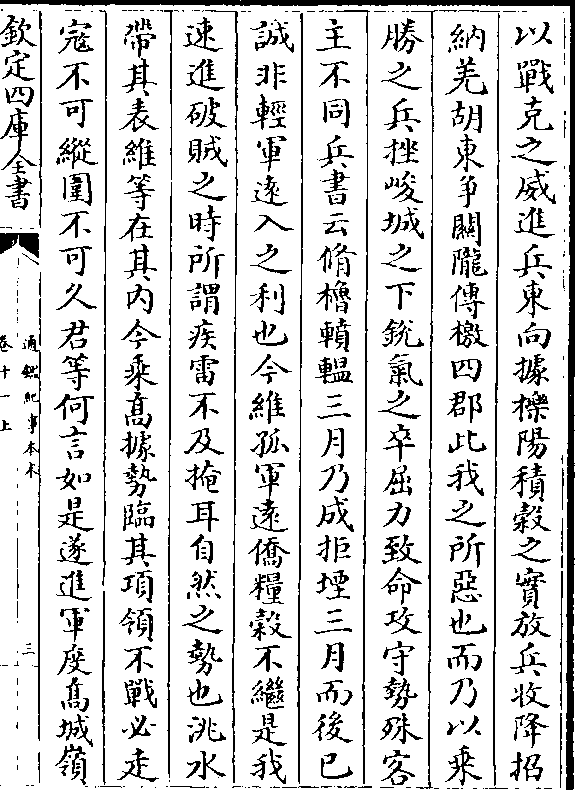 以戰克之威進兵東向據櫟陽積穀之實放兵收降招
納羌胡東爭關隴傳檄四郡此我之所惡也而乃以乗
勝之兵挫峻城之下鋭氣之卒屈力致命攻守勢殊客
主不同兵書云脩櫓轒轀三月乃成拒堙三月而後已
誠非輕軍逺入之利也今維孤軍逺僑糧穀不繼是我
速進破賊之時所謂疾雷不及掩耳自然之勢也洮水
帶其表維等在其内今乗髙據勢臨其項領不戰必走
宼不可縱圍不可久君等何言如是遂進軍度髙城嶺
欽定四庫全書
通鑑紀事本末
卷十一上
三